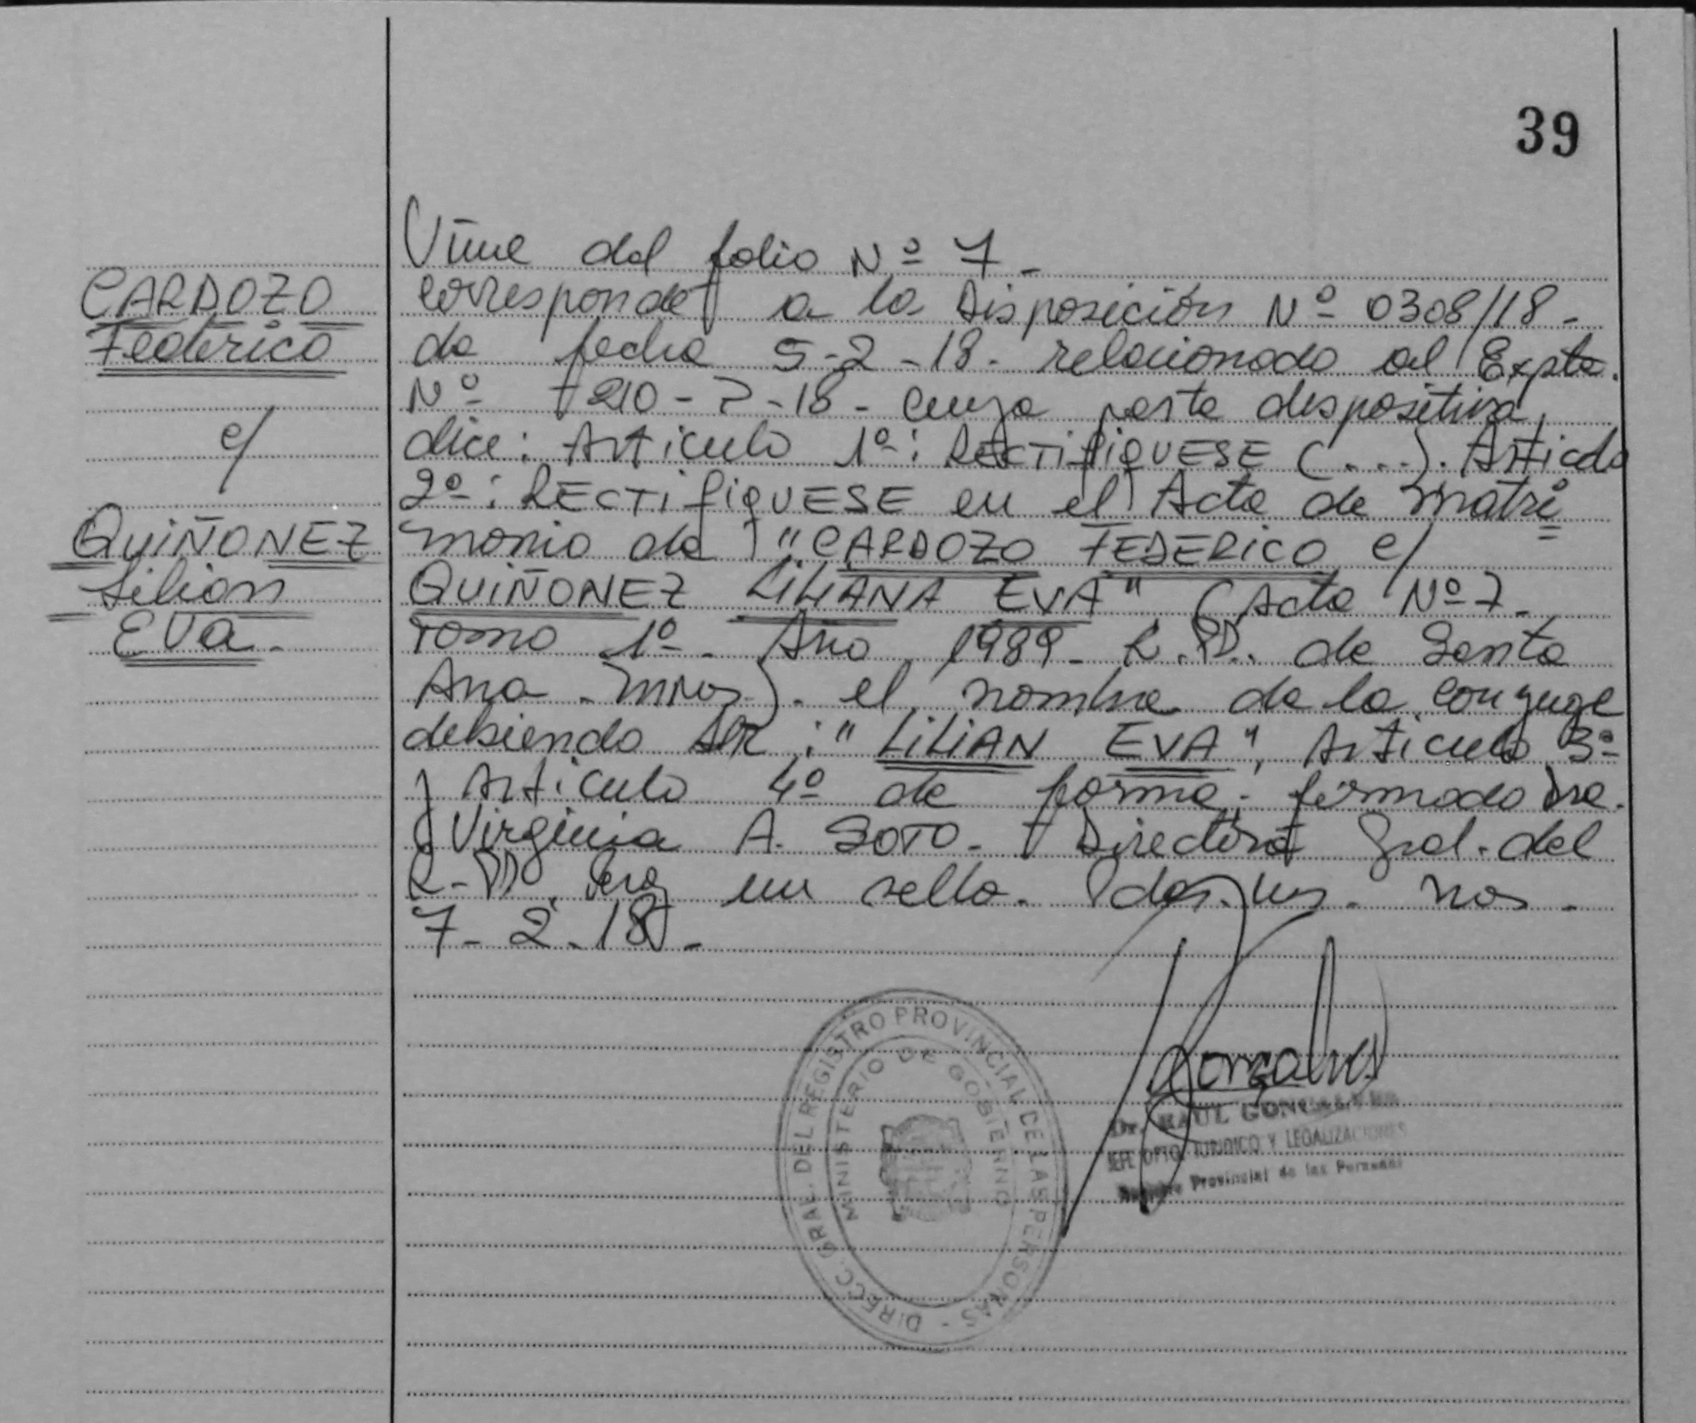 39
CARDOZO
Federico
c/
QUIÑONEZ
Lilian
EVA.
Viene del folio Nº 7.
corresponde a la Disposición Nº 0308/18.
de fecha 5-2-18. relacionado al Expte.
Nº 210 - 18. cuya parte dispositiva,
dice: Artículo 1º: RECTIFIQUESE (...). Artículo
2º: RECTIFIQUESE en el Acta de Matri
monio de "CARDOZO FEDERICO c/
QUIÑONEZ LILIANA EVA" (Acta Nº 7.
Tomo 1º. Año 1989. R.PP. de Santa
Ana. Mnes). el nombre de la conyuge
debiendo ser: "LILIAN EVA". Artículo 3º
y Artículo 4º de forma. firmado Dra.
Virginia A. SOTO. Directora Gral. del
R.PP. Hay un sello. Pdas. Ms. nes.
7-2-18.
DIRECC. GRAL. DEL REGISTRO PROVINCIAL DE LAS PERSONAS -
MINISTERIO DE GOBIERNO
Gonzalves
Dr. RAUL GONCALVES
JEFE DPTO. JURIDICO Y LEGALIZACIONES
Registro Provincial de las Personas